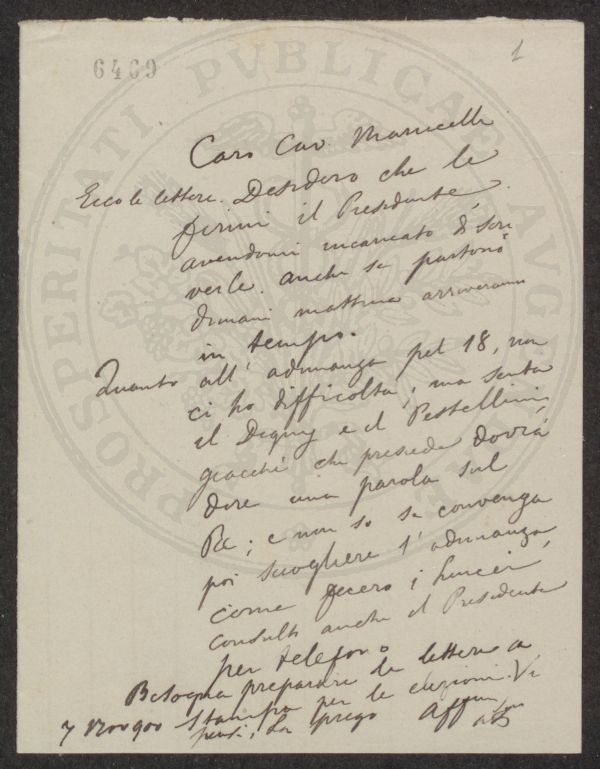 6469
1
Caro Cav. Marucelli
Ecco le lettere. Desidero che le
firmi il Presidente,
avendomi incaricato di scri
verle. anche se partono
dimani mattina arriveranno
in tempo.
Quanto all'adunanza pel 18, non
ci ho difficoltà; ma senta
il Degny e il Pestellini,
giacchè chi presiede dovrà
dire una parola sul
Re; e non so se convenga
poi sciogliere l'adunanza
come fecero i Lincei,
consulti anche il Presidente
per telefono
Bisogna preparare la lettera a
stampa per le elezioni. Vi
7 Nov 900
pensi, La prego Aff
PROSPERITATI PVBLICAE AVG